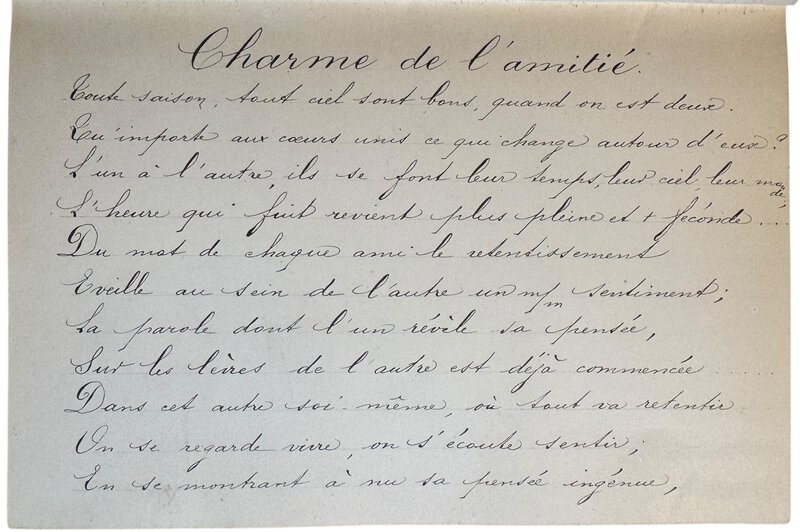 Charme de l'amitié.
Toute saison, tout ciel sont bons, quand on est deux.
Qu'importe aux cœurs unis ce qui change autour d'eux?
L'un à l'autre, ils se font leur temps, leur ciel, leur monde;
L'heure qui fuit revient plus pleine et + féconde....
Du mot de chaque ami le retentissement
Eveille au sein de l'autre un m/m sentiment;
La parole dont l'un révèle sa pensée,
Sur les lèvres de l'autre est déjà commencée.....
Dans cet autre soi-même, où tout va retentir
On se regarde vivre, on s'écoute sentir;
En se montrant à nu sa pensée ingénue,